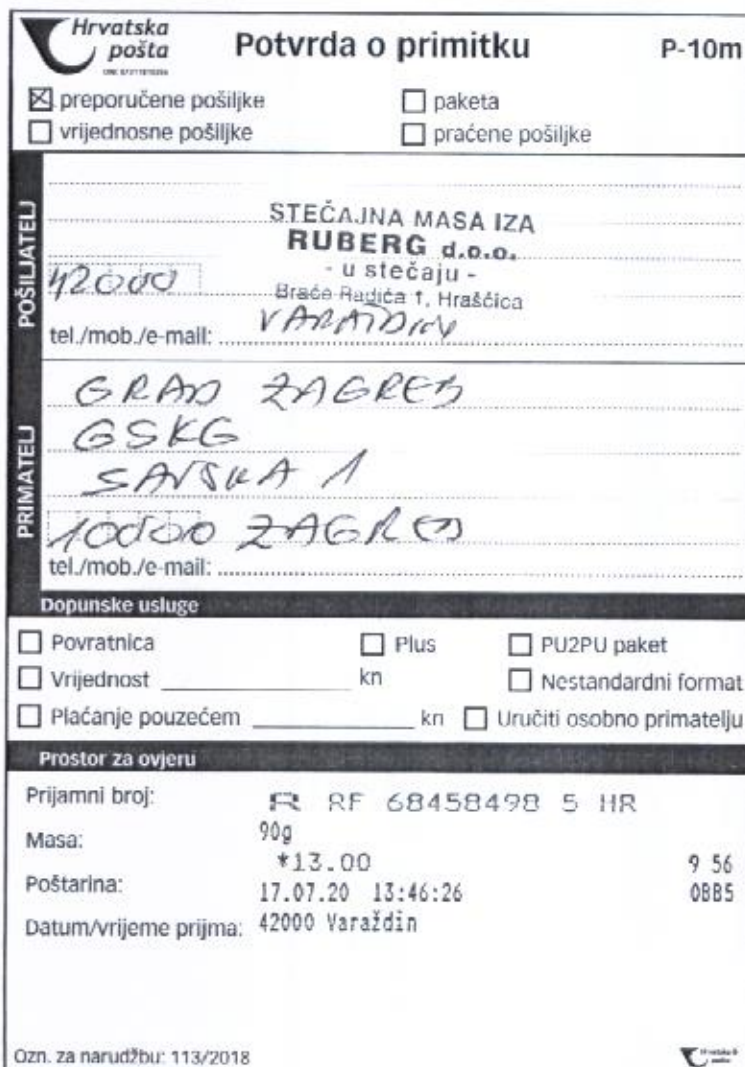 Hrvatska pošta
Potvrda o primitku
P-10m
preporučene pošiljke
paketa
vrijednosne pošiljke
praćene pošiljke
POŠILJATELJ
STEČAJNA MASA IZA
RUBERG d.o.o.
- u stečaju -
Braće Radića 1, Hrašćica
42000
VARAŽDIN
tel./mob./e-mail:
PRIMATELJ
GRAD ZAGREB
GSKG
SAVSKA 1
10000 ZAGREB
tel./mob./e-mail:
Dopunske usluge
Povratnica
Plus
PU2PU paket
Vrijednost kn
Nestandardni format
Plaćanje pouzećem kn
Uručiti osobno primatelju
Prostor za ovjeru
Prijamni broj: R RF 68458498 5 HR
Masa: 90g
*13.00 9 56
Poštarina: 17.07.20 13:46:26 0BB5
Datum/vrijeme prijma: 42000 Varaždin
Ozn. za narudžbu: 113/2018